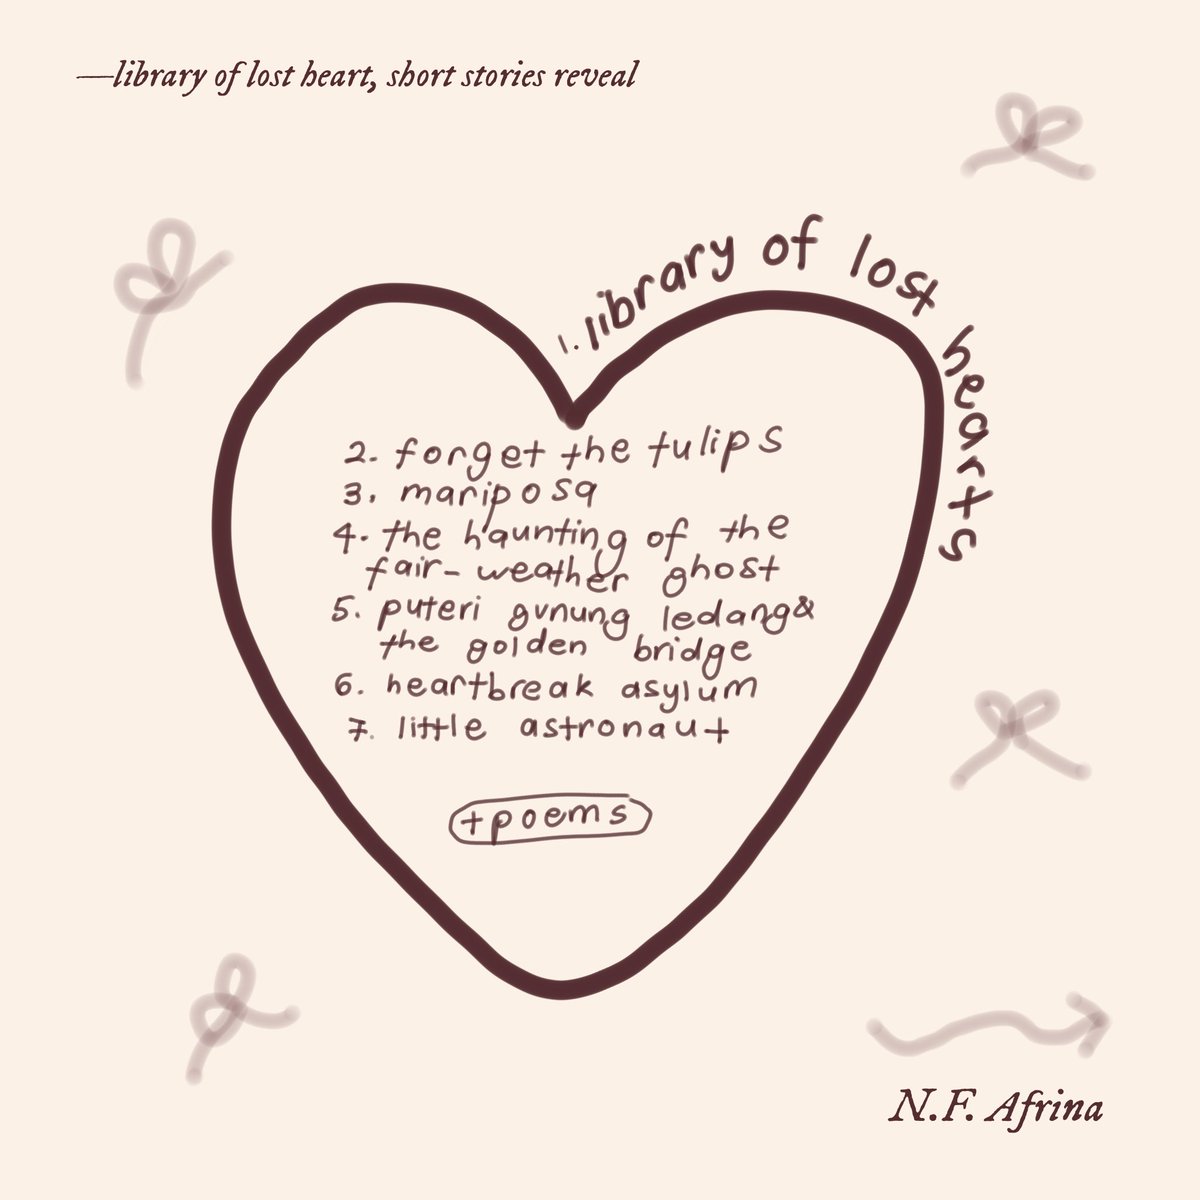 —library of lost heart, short stories reveal
1. library of lost hearts
2. forget the tulips
3. mariposa
4. the haunting of the
fair-weather ghost
5. puteri gunung ledang&
the golden bridge
6. heartbreak asylum
7. little astronaut
+poems
N.F. Afrina